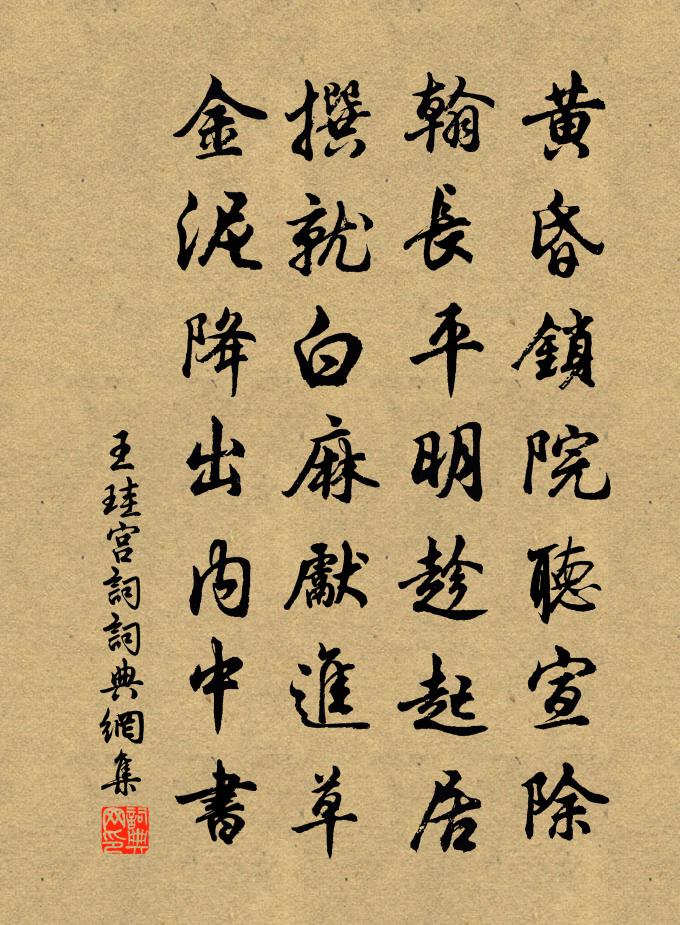 黄昏鎖院聽宣除
翰長平明趁起居
撰就白麻獻進草
金泥降出内中書
王珪宮詞詞典網集
詞典網印